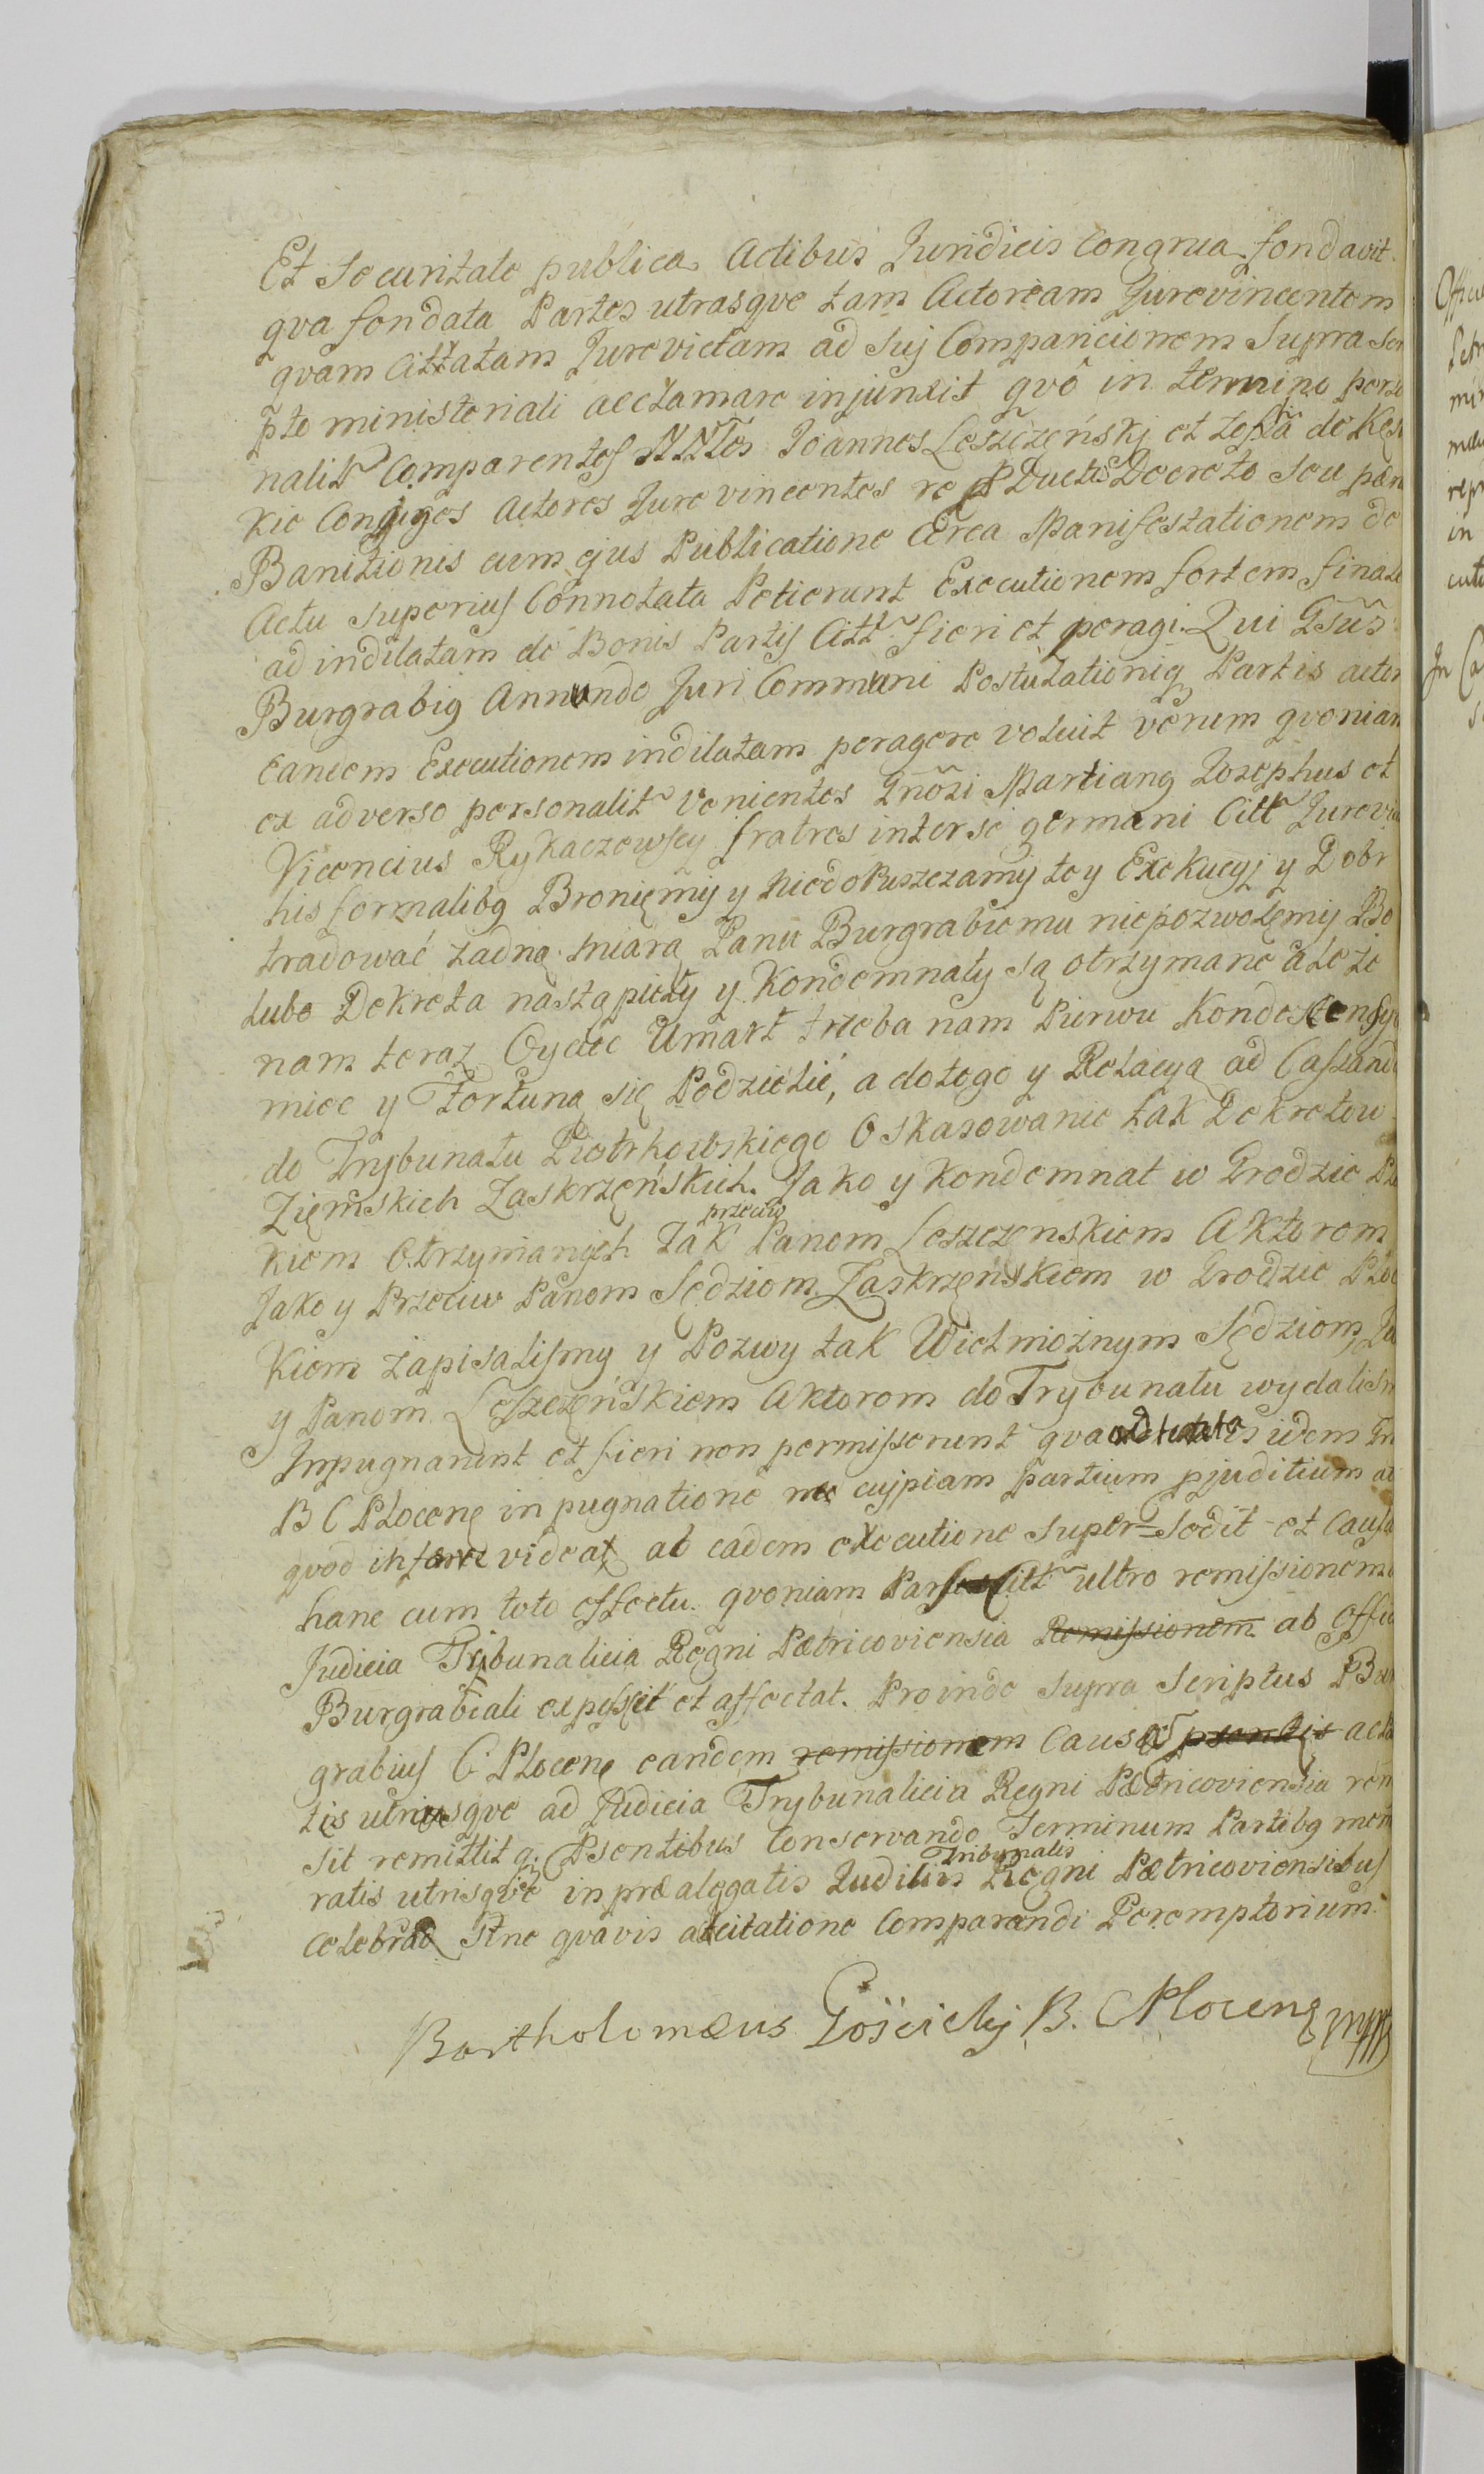 Et Securitate publica Actibus Juridicis Congrua fondavit
qva fondata Partes utrasqve tam Actoream Jurevincentem
qvam Cittatam Jurevictam ad Suj Comparicionem Supra Scri
pto ministeriali acclamare injunxit qvô in termino perso
nalitr Comparentes Joannes Leszczeński et Zofia de
kie Conjuges Actores Jure vincentes Decreto Seu pæn
Banitionis cum ejus Publicatione Cerca Manifestationem de
Actu superius Connotata Petierunt Executionem fortem finale
ad indilatam de Bonis Partis Citt fieri et peragi. Qui Gsūs
Burgrabig Annuendo Juri Communi Postulationiq Partis actor
eandem Executionem indilatam peragere voluit verum qvoniam
ex adverso personalitr Venientes Gnōsi Martiang Josephus et
Vicencius Rykaczewscy fratres inter se germani Citt Jurevic
his formalibg Bronięmy y niedopuszczamy tey Exekucyj y Dobr
tradować żadną miarą Panu Burgrabiemu niepozwolęmy Bo
lubo Dekreta nastąpieły y Kondemnaty są otrzymane ale że
nam teraz Oyciec Umart trzeba nam Pierwu Kondescensyą
miec y Fortuną się Podzielić, a dotego y Relacyą ad Cassand
do Trybunału Piotrkowskiego O skasowanie tak Dekretow
Ziemskich Zaskrzeńskich. Jako y Kondemnat w Grodzie Pło
przeciw
kiem Otrzymanych Tak Panom Leszczenskiem Aktorom
Jako y Przeciw Panom Sędziom Zaskrzenskiem w Grodzie Płoc
kiem zapisalismy y Pozwy tak Wielmożnym Sędziom Za
y Panom Leszczeńskiem Aktorom do Trybunału wydalism
Inpugnarunt et fieri non permisserunt qva idem Gn
B C Plocenę in pugnatione ne cujpiam partium pjuditium al
qvod inferre videat ab eadem executione super=sedit et Causa
hanc cum toto effectu. qvoniam Pars Citt ultro remissionem
Judicia Trybunalicia Regni Petricoviensia Remissionem ab Offic
Burgrabiali expossit et affectat. Proinde supra Scriptus Bur
grabius C Plocenę eandem remissionem Causą psentis acto
tis utriusqve ad Judicia Trybunalicia Regni Pætricoviensia rem
sit remittit q. Psentibus Conservando Terminum Partibg mem
Tribunalis
ratis utrisqve in præalegatis Judiliis Regni Pætricoviensibus
celebrad Sine qvavis adcitatione Comparendi Peremptorium.
Bartholomæus Gościcky B. C Plocenę mpp